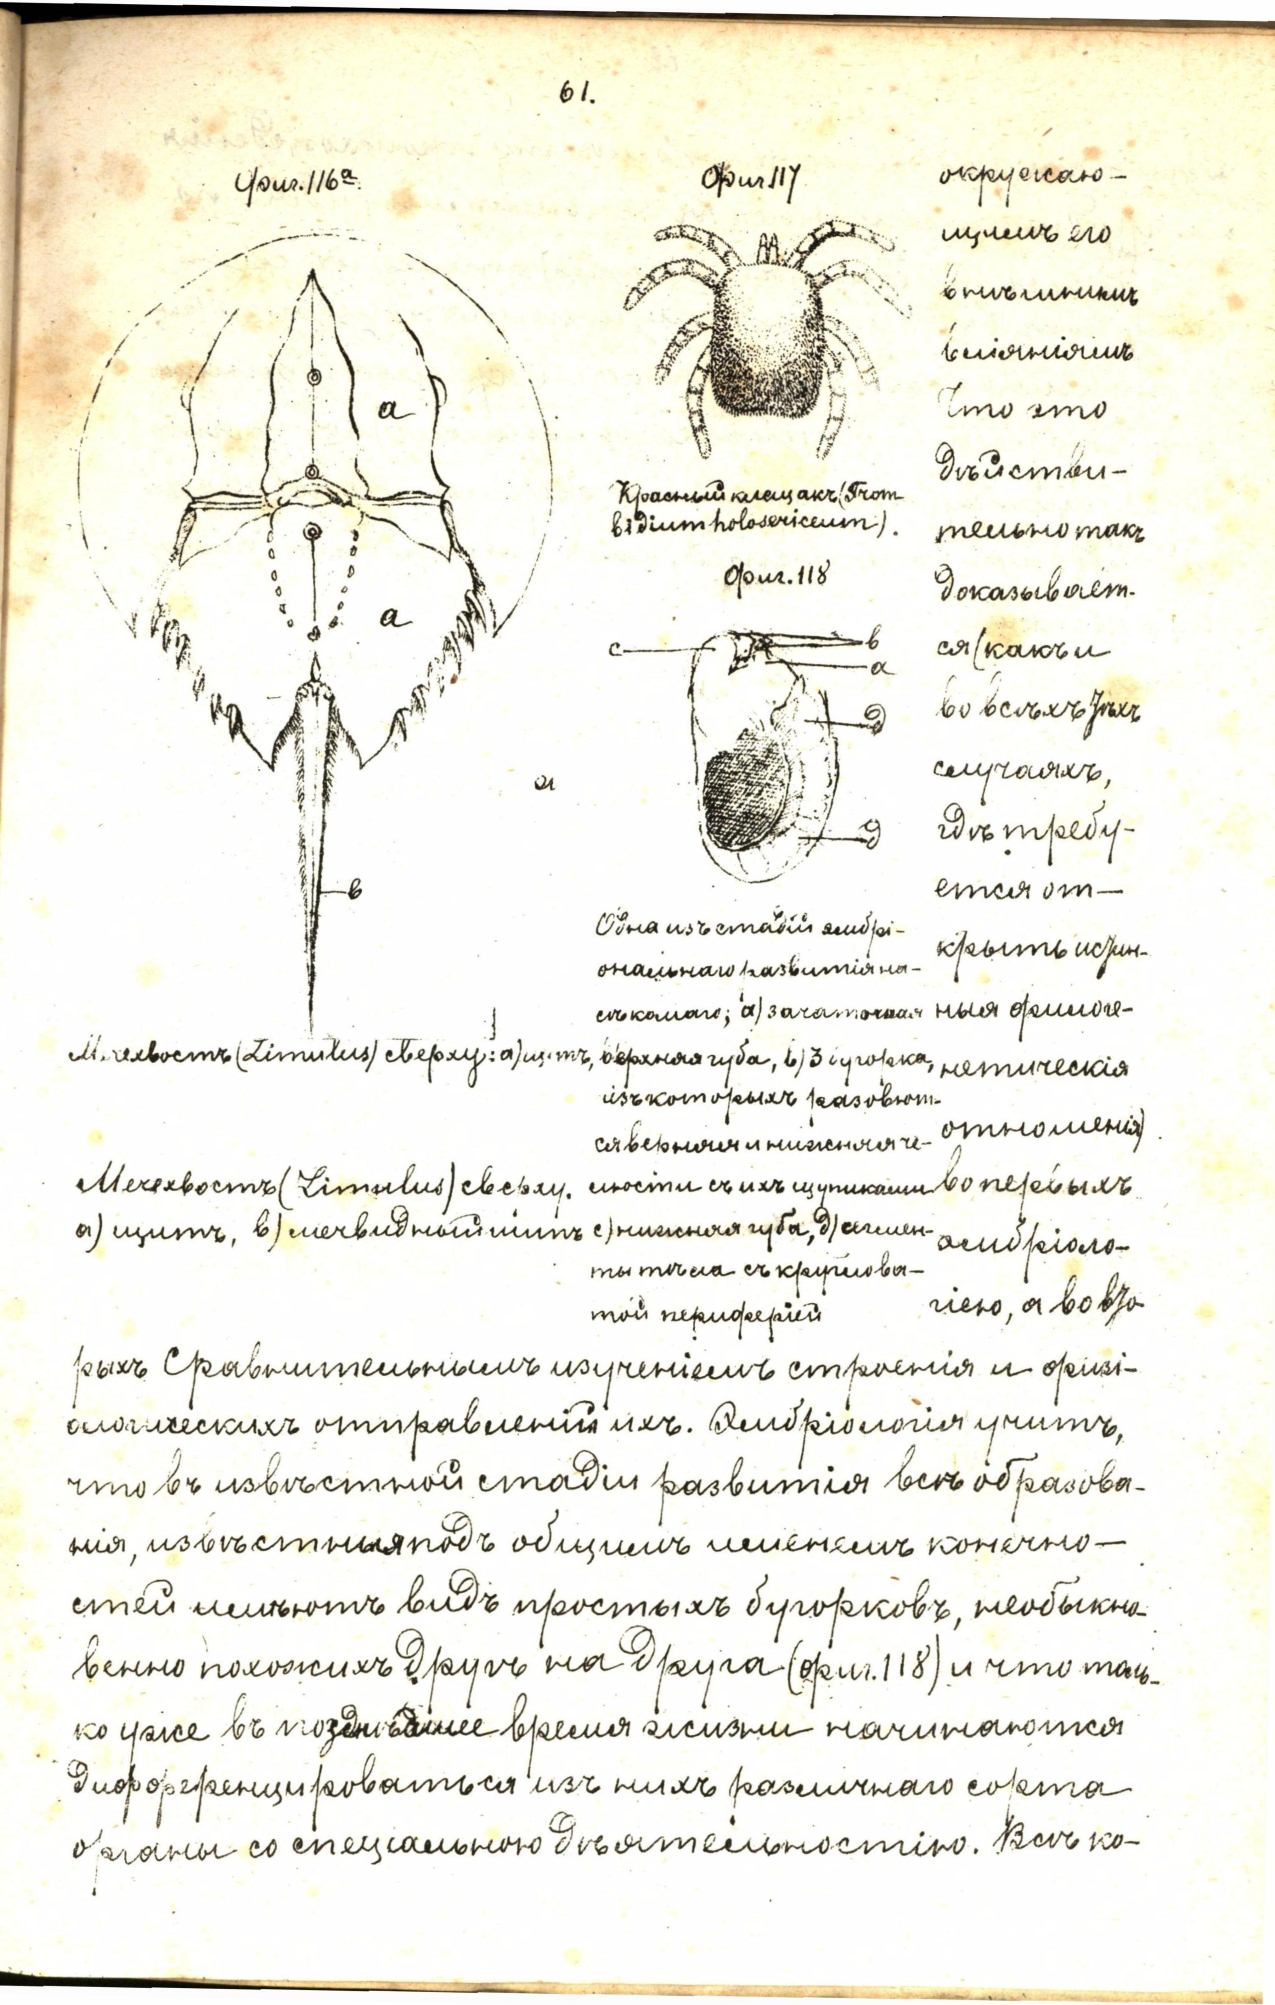 61.
Фиг. 116а.
а
а
в
Мечехвостъ (Limulus) сверху: а) щитъ,
Мечехвостъ (Limulus) сверху.
а) щитъ, в) мечвидный шипъ
Фиг 117
Красный клещакъ (Trom
bidium holosericeum).
Фиг. 118
с
в
а
д
д
а
Одна изъ стадій эмбрі-
ональнаго развитія на-
сѣкомаго; а) зачаточная
верхняя губа, в) 3 бугорка,
изъ которыхъ разовьют-
ся верхняя и нижняя че-
люсти съ ихъ щупиками
с) нижняя губа, д) сегмен-
ты тѣла съ круглова-
той периферіей
окружаю-
щимъ его
внѣшнимъ
вліяніямъ
Что это
дѣйстви-
тельно такъ
доказывает-
ся (какъ и
во всѣхъ тѣхъ
случаяхъ,
гдѣ требу-
ется от-
крыть истин-
ныя филоге-
нетическія
отношенія)
во первыхъ
эмбріоло-
гіею, а во вто
рыхъ Сравнительнымъ изученіемъ строенія и физі-
ологическихъ отправленій ихъ. Эмбріологія учитъ,
что въ извѣстной стадіи развитія всѣ образова-
нія, извѣстныя подъ общимъ именемъ конечно-
стей имѣютъ видъ простыхъ бугорковъ, необыкно-
венно похожихъ другъ на друга (фиг. 118) и что толь-
ко уже въ позднѣйшее время жизни начинаются
дифференцироваться изъ нихъ различнаго сорта
органы со спеціальною дѣятельностію. Всѣ ко-